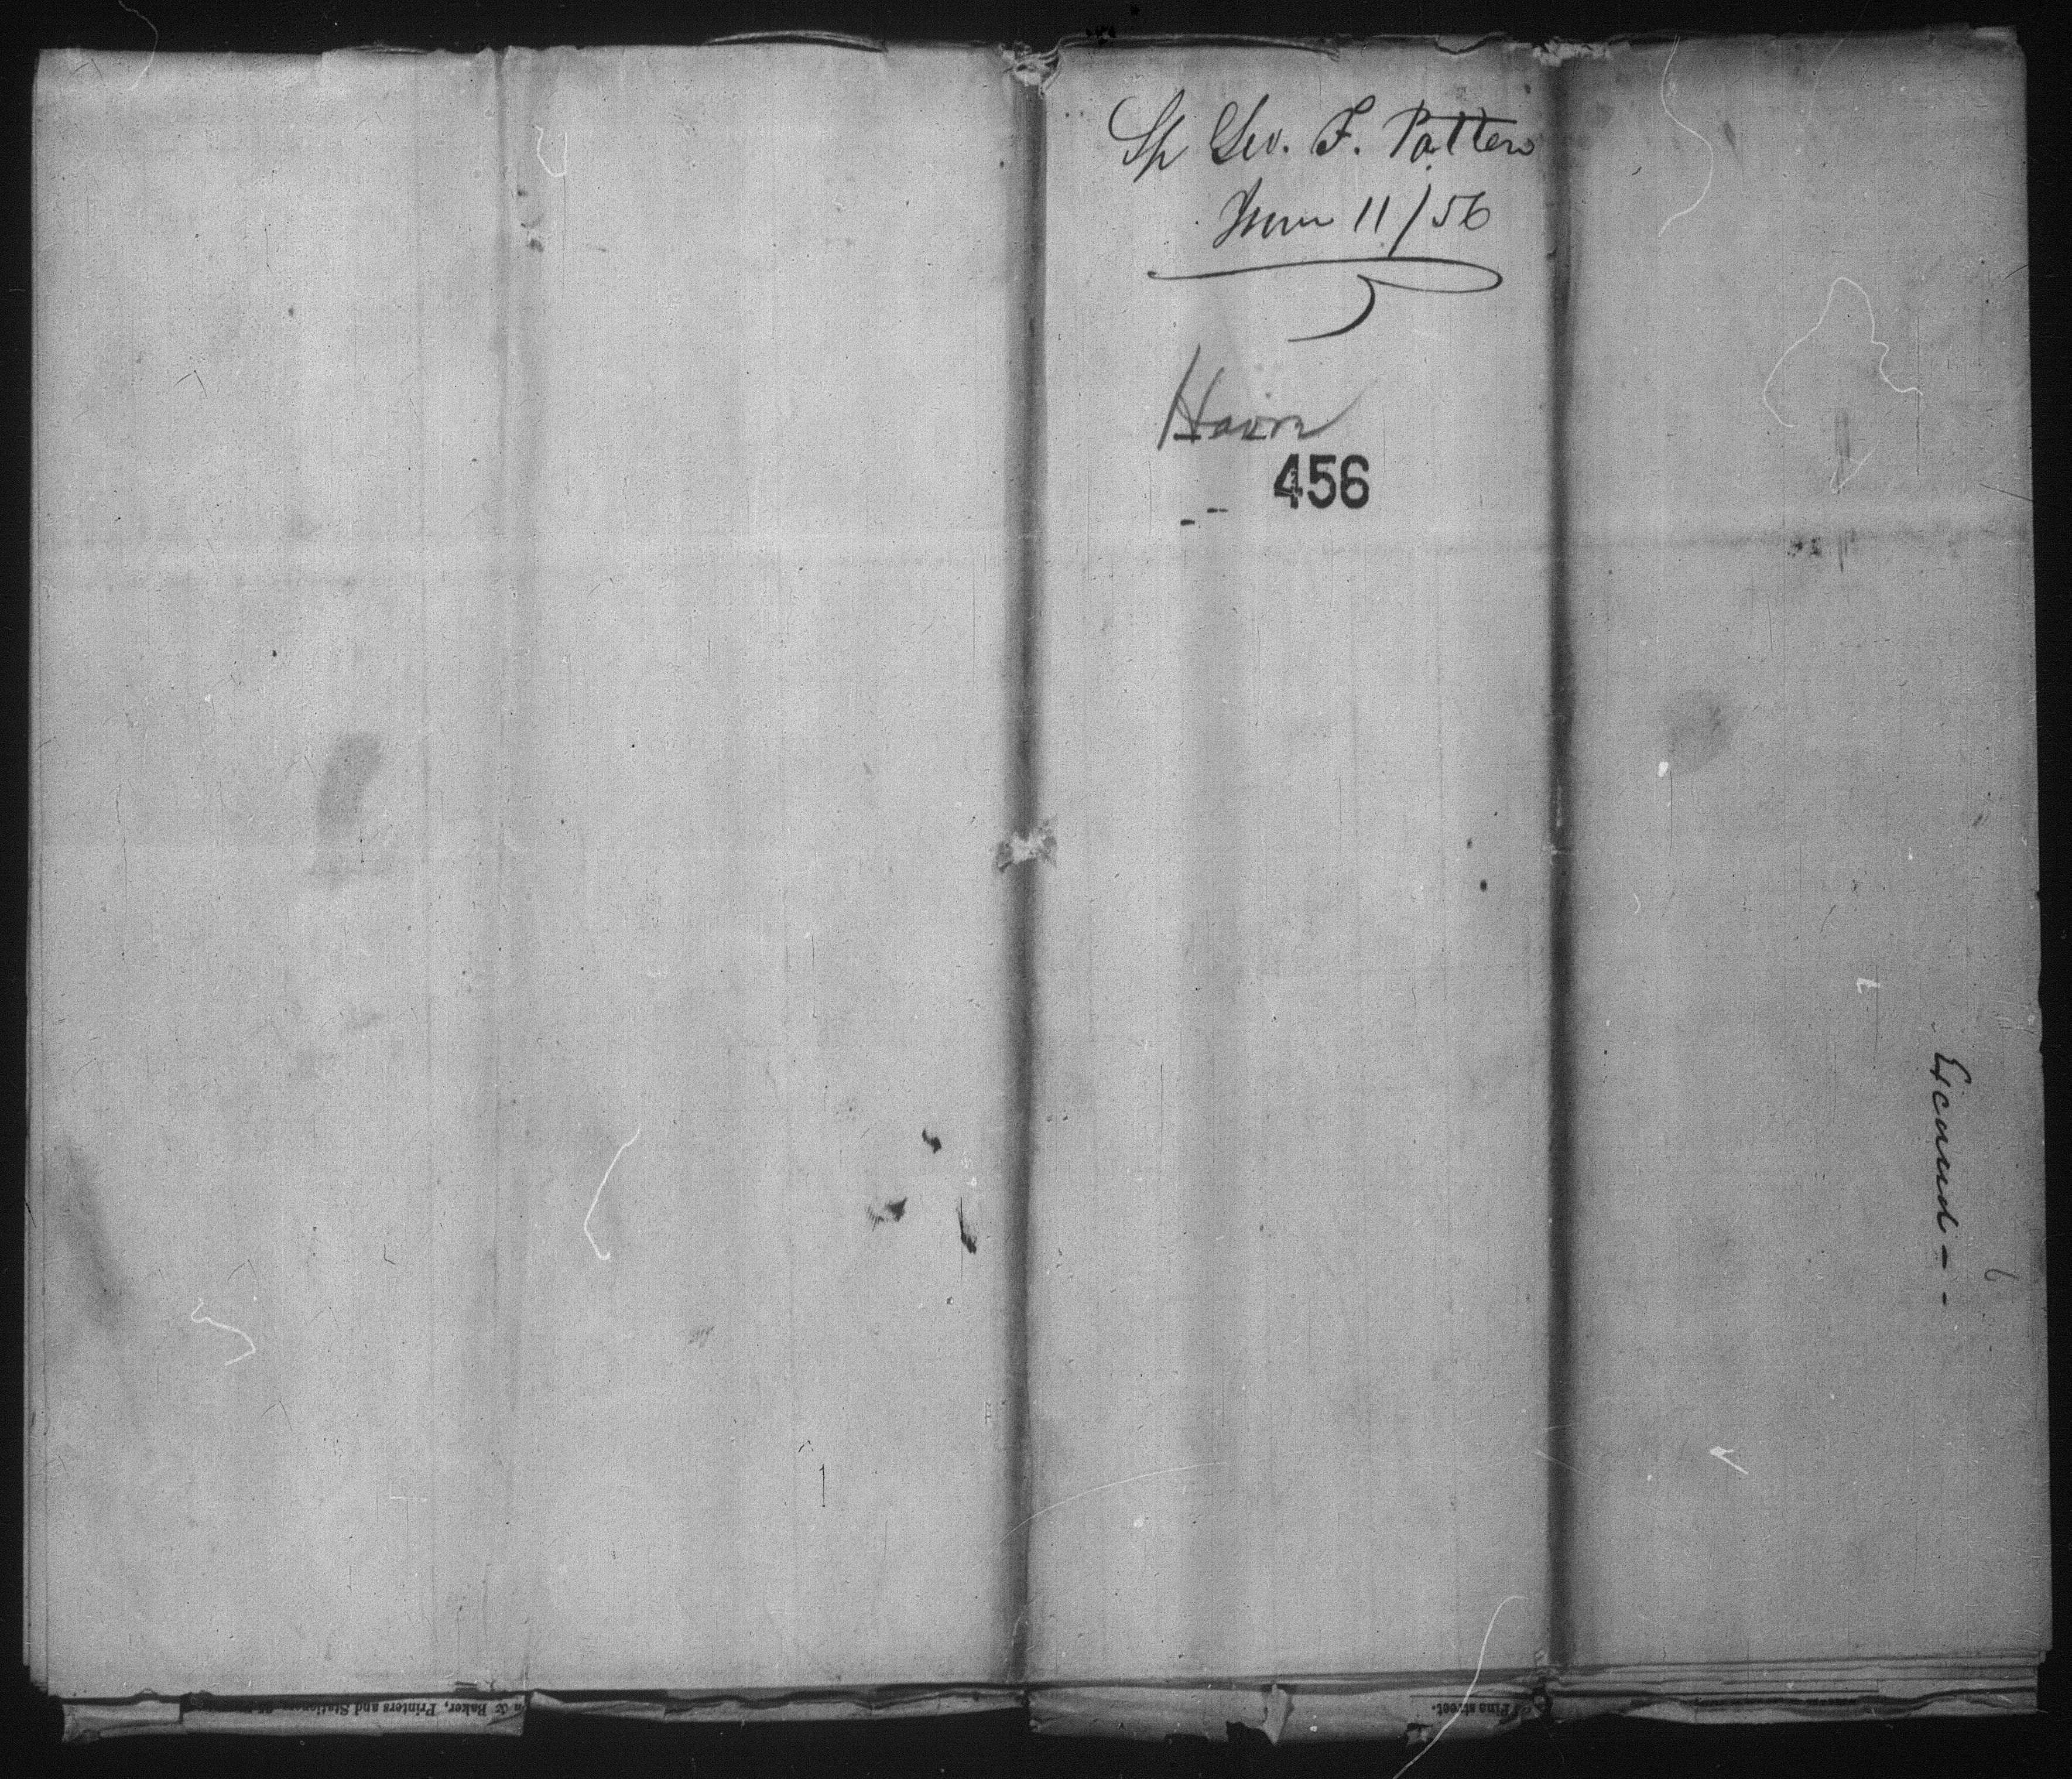 Sh Geo. F. Patten
June 11/56
Havre
456
& Baker, Printers and Stationers,
Pine street.